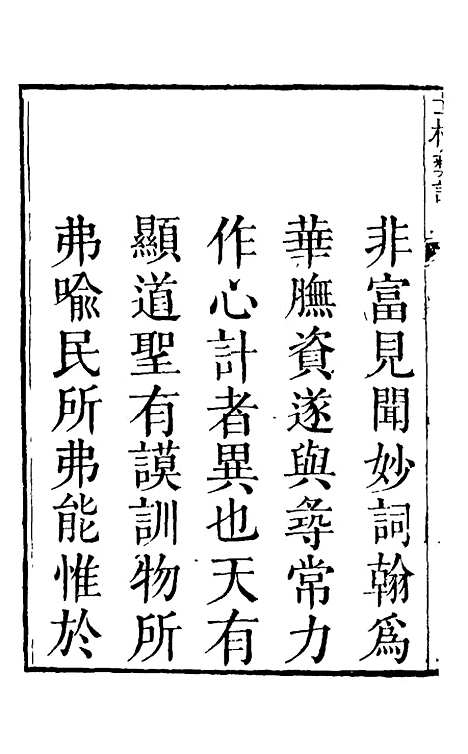 非富見聞妙詞翰爲
華膴資遂與尋常力
作心計者異也天有
顯道聖有謨訓物所
弗喩民所弗能惟於